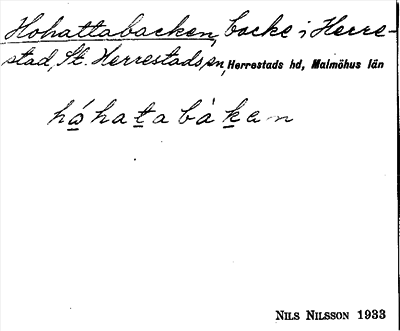 Hohattabacken, backe i Herre-
stad, St. Herrestads sn, Herrestads hd, Malmöhus län
hǿhatabàkan
NILS NILSSON 1933